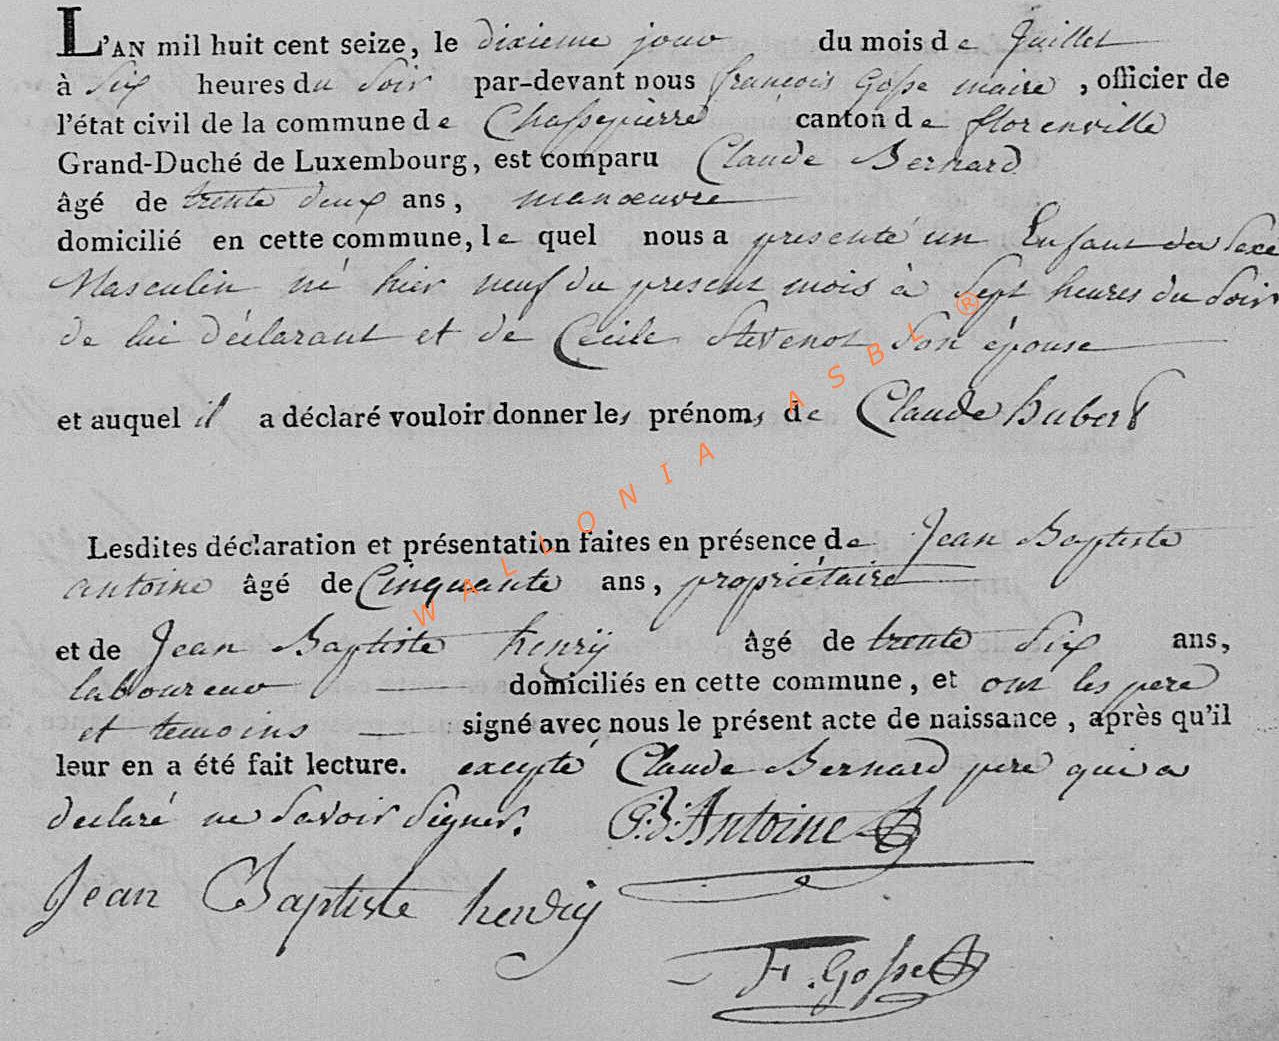 L'AN mil huit cent seize, le dixieme jour du mois de Juillet
à six heures du soir par-devant nous françois Gosse maire, officier de
l'état civil de la commune de Chassepierre canton de florenville
Grand-Duché de Luxembourg, est comparu Claude Bernard
âgé de trente deux ans, manœuvre
domicilié en cette commune, lequel nous a presenté un Enfant du Sexe
Masculin né hier neuf du present mois à Sept heures du Soir
de lui déclarant et de Cecile Stevenot son épouse
et auquel il a déclaré vouloir donner les prénoms de Claude hubert
Lesdites déclaration et présentation faites en présence de Jean Baptiste
antoine âgé de Cinquante ans, propriétaire
et de Jean Baptiste henry âgé de trente six ans,
laboureur domiciliés en cette commune, et ont les pere
et temoins signé avec nous le présent acte de naissance, après qu'il
leur en a été fait lecture. excepté Claude Bernard pere qui a
declaré ne Savoir Signer. J:B:Antoine
Jean Baptiste hendry
F. Gosse
WALLONIA ASBL ®